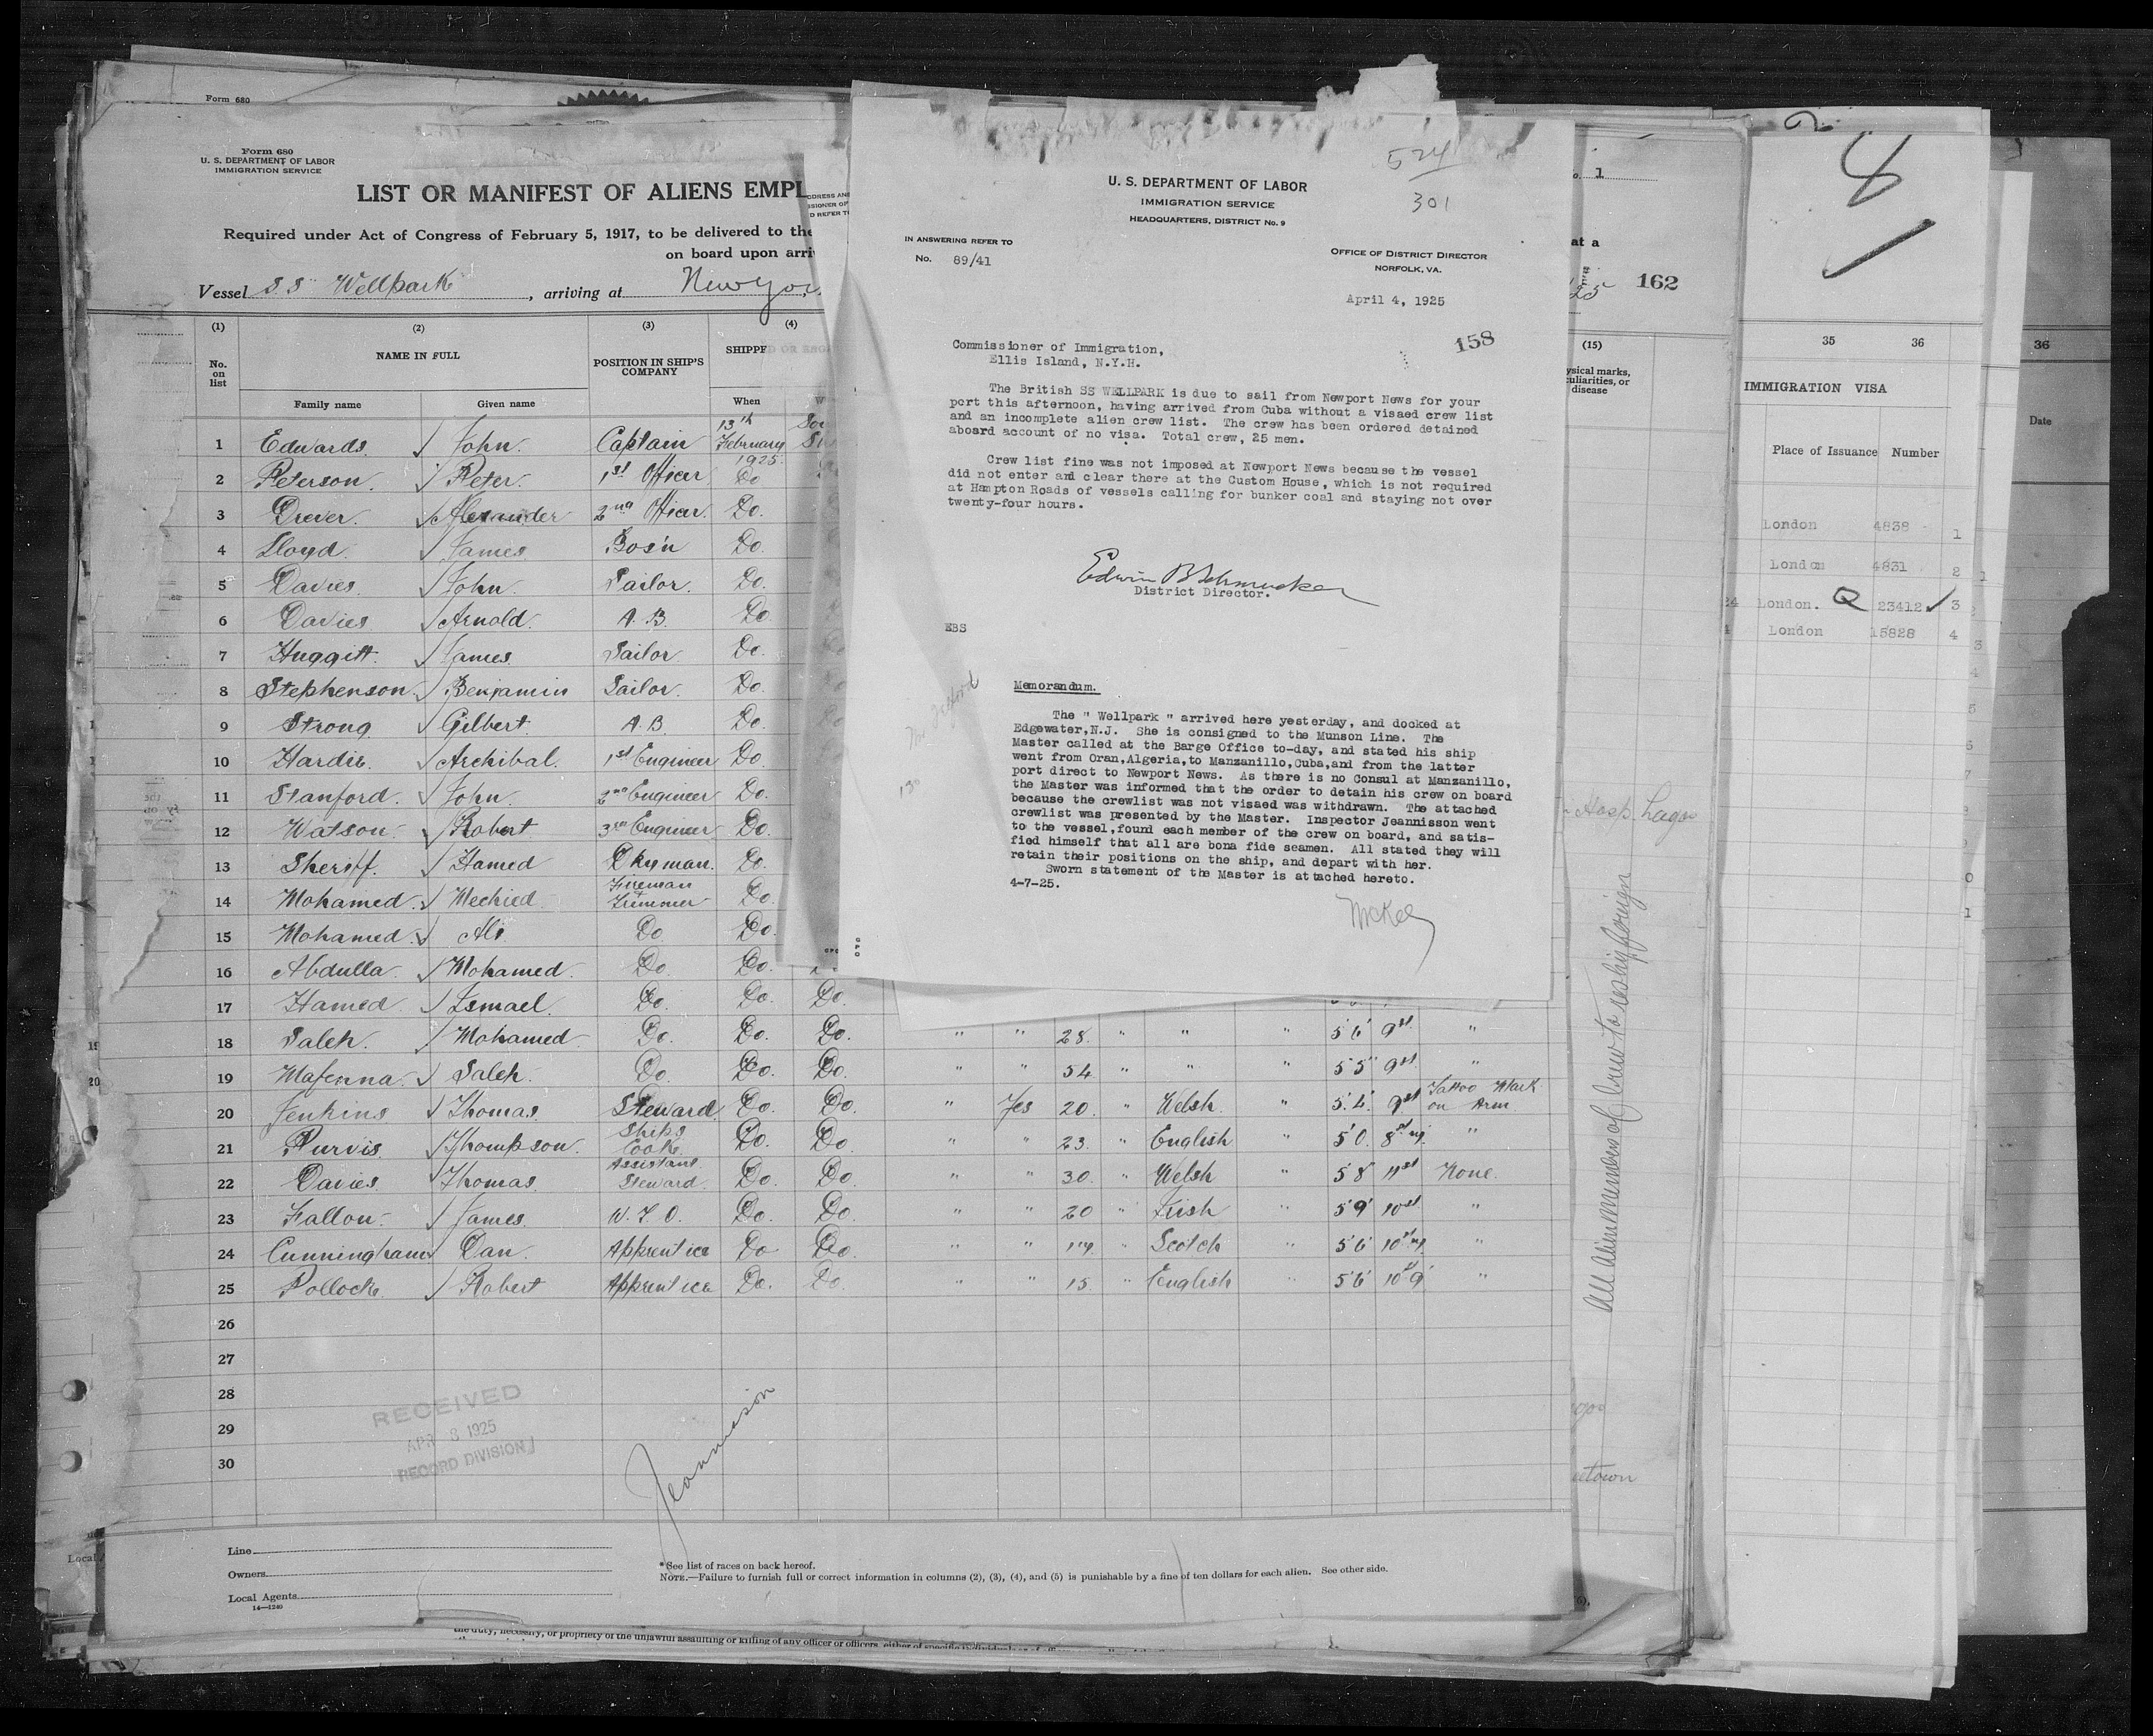 Form 680
Form 680
U. S. DEPARTMENT OF LABOR
IMMIGRATION SERVICE
LIST OR MANIFEST OF ALIENS EMPL
Required under Act of Congress of February 5, 1917, to be delivered to the
on board upon arri
Vessel SS Wellpark, arriving at New Yor
(1) (2) (3) (4)
No. on list
NAME IN FULL
POSITION IN SHIP'S COMPANY
SHIPPE
Family name Given name When
1 Edwards. John. Captain 13th February 1925.
2 Peterson. Peter. 1st Officer Do
3 Drever. Alexander 2nd Officer. Do.
4 Lloyd. James Bos'n Do.
5 Davies. John. Sailor. Do.
6 Davies Arnold. A. B. Do.
7 Huggitt. James. Sailor. Do.
8 Stephenson. Benjamin Sailor. Do.
9 Strong Gilbert. A. B. Do.
10 Hardie. Archibal. 1st Engineer Do.
11 Stanford. John. 2nd Engineer Do.
12 Watson. Robert 3rd Engineer Do.
13 Sheriff. Hamed Dkyman. Do.
14 Mohamed. Mechied. Fireman Trimmer Do.
15 Mohamed. Ali. Do Do.
16 Abdulla. Mohamed. Do. Do.
17 Hamed Ismael. Do. Do. Do.
18 Saleh. Mohamed. Do. Do. Do. " " 28. " " " 5'6' 9st "
19 Mafenna. Saleh. Do. Do. Do. " " 54 " " " 5'5" 9st "
20 Jenkins Thomas. Steward Do. Do. " Yes 20. " Welsh. " 5'. 6'. 9st Tattoo Mark on Arm
21 Purvis. Thompson. Ships Cook. Do. Do " " 23. " English " 5'0. "
22 Davies. Thomas. Assistant Steward. Do. Do. " " 30. " Welsh " 5'8 11st None.
23 Fallon. James. Do. Do. " " 20 " Irish " 5'9' 10st "
24 Cunningham Dan. Apprentice Do Do. " " 17. " Scotch " 5'6' "
25 Pollock. Robert Apprentice Do. Do. " " 15. " English " 5'6' "
26
27
28
29
30
RECEIVED
APR 8 1925
RECORD DIVISION
Jeannisson
Line
Owners
Local Agents
14—1240
*See list of races on back hereof.
NOTE.—Failure to furnish full or correct information in columns (2), (3), (4), and (5) is punishable by a fine of ten dollars for each alien. See other side.
the duty, necessity, or propriety of the unlawful assaulting or killing of any officer or officers, either of specific individuals or of
524
301
U. S. DEPARTMENT OF LABOR
IMMIGRATION SERVICE
HEADQUARTERS, DISTRICT No. 9
IN ANSWERING REFER TO
No. 89/41
OFFICE OF DISTRICT DIRECTOR
NORFOLK, VA.
April 4, 1925
158
Commissioner of Immigration,
Ellis Island, N.Y.H.
The British SS WELLPARK is due to sail from Newport News for your
port this afternoon, having arrived from Cuba without a visaed crew list
and an incomplete alien crew list. The crew has been ordered detained
aboard account of no visa. Total crew, 25 men.
Crew list fine was not imposed at Newport News because the vessel
did not enter and clear there at the Custom House, which is not required
at Hampton Roads of vessels calling for bunker coal and staying not over
twenty-four hours.
Edwin B Schmucker
District Director.
EBS
Memorandum.
The " Wellpark " arrived here yesterday, and docked at
Edgewater,N.J. She is consigned to the Munson Line. The
Master called at the Barge Office to-day, and stated his ship
went from Oran,Algeria,to Manzanillo,Cuba,and from the latter
port direct to Newport News. As there is no Consul at Manzanillo,
the Master was informed that the order to detain his crew on board
because the crewlist was not visaed was withdrawn. The attached
crewlist was presented by the Master. Inspector Jeannisson went
to the vessel,found each member of the crew on board, and satis-
fied himself that all are bona fide seamen. All stated they will
retain their positions on the ship, and depart with her.
Sworn statement of the Master is attached hereto.
4-7-25.
McKee
130
GPO
1
at a
25 162
(15)
ysical marks,
culiarities, or
disease
All alien members of crew to reship foreign
35 36
IMMIGRATION VISA
Place of Issuance Number
London 4838 1
London 4831 2
London. 23412 3
London 15828 4
36
Date